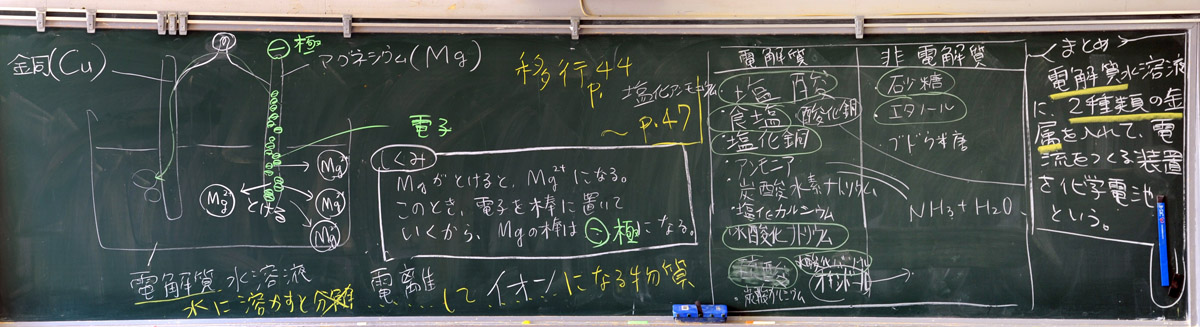 銅(Cu)
⊖極
マグネシウム(Mg)
電子
Mg²⁺
Mg²⁺
Mg²⁺
Mg²⁺
とける
電解質水溶液
水に溶かすと
電離して イオンになる物質
移行44
p.
~ p.47
しくみ
Mgがとけると、Mg²⁺になる。
このとき、電子を棒に置いて
いくから、Mgの棒は⊖極になる。
電解質
塩化アンモニウム
塩酸
食塩
酸化銅
塩化銅
・アンモニア
・炭酸水素ナトリウム
・塩化カルシウム
水酸化ナトリウム
非電解質
砂糖
エタノール
・ブドウ糖
NH3+H2O
まとめ
電解質水溶液
に、2種類の金
属を入れて、電
流をつくる装置
を化学電池
という。